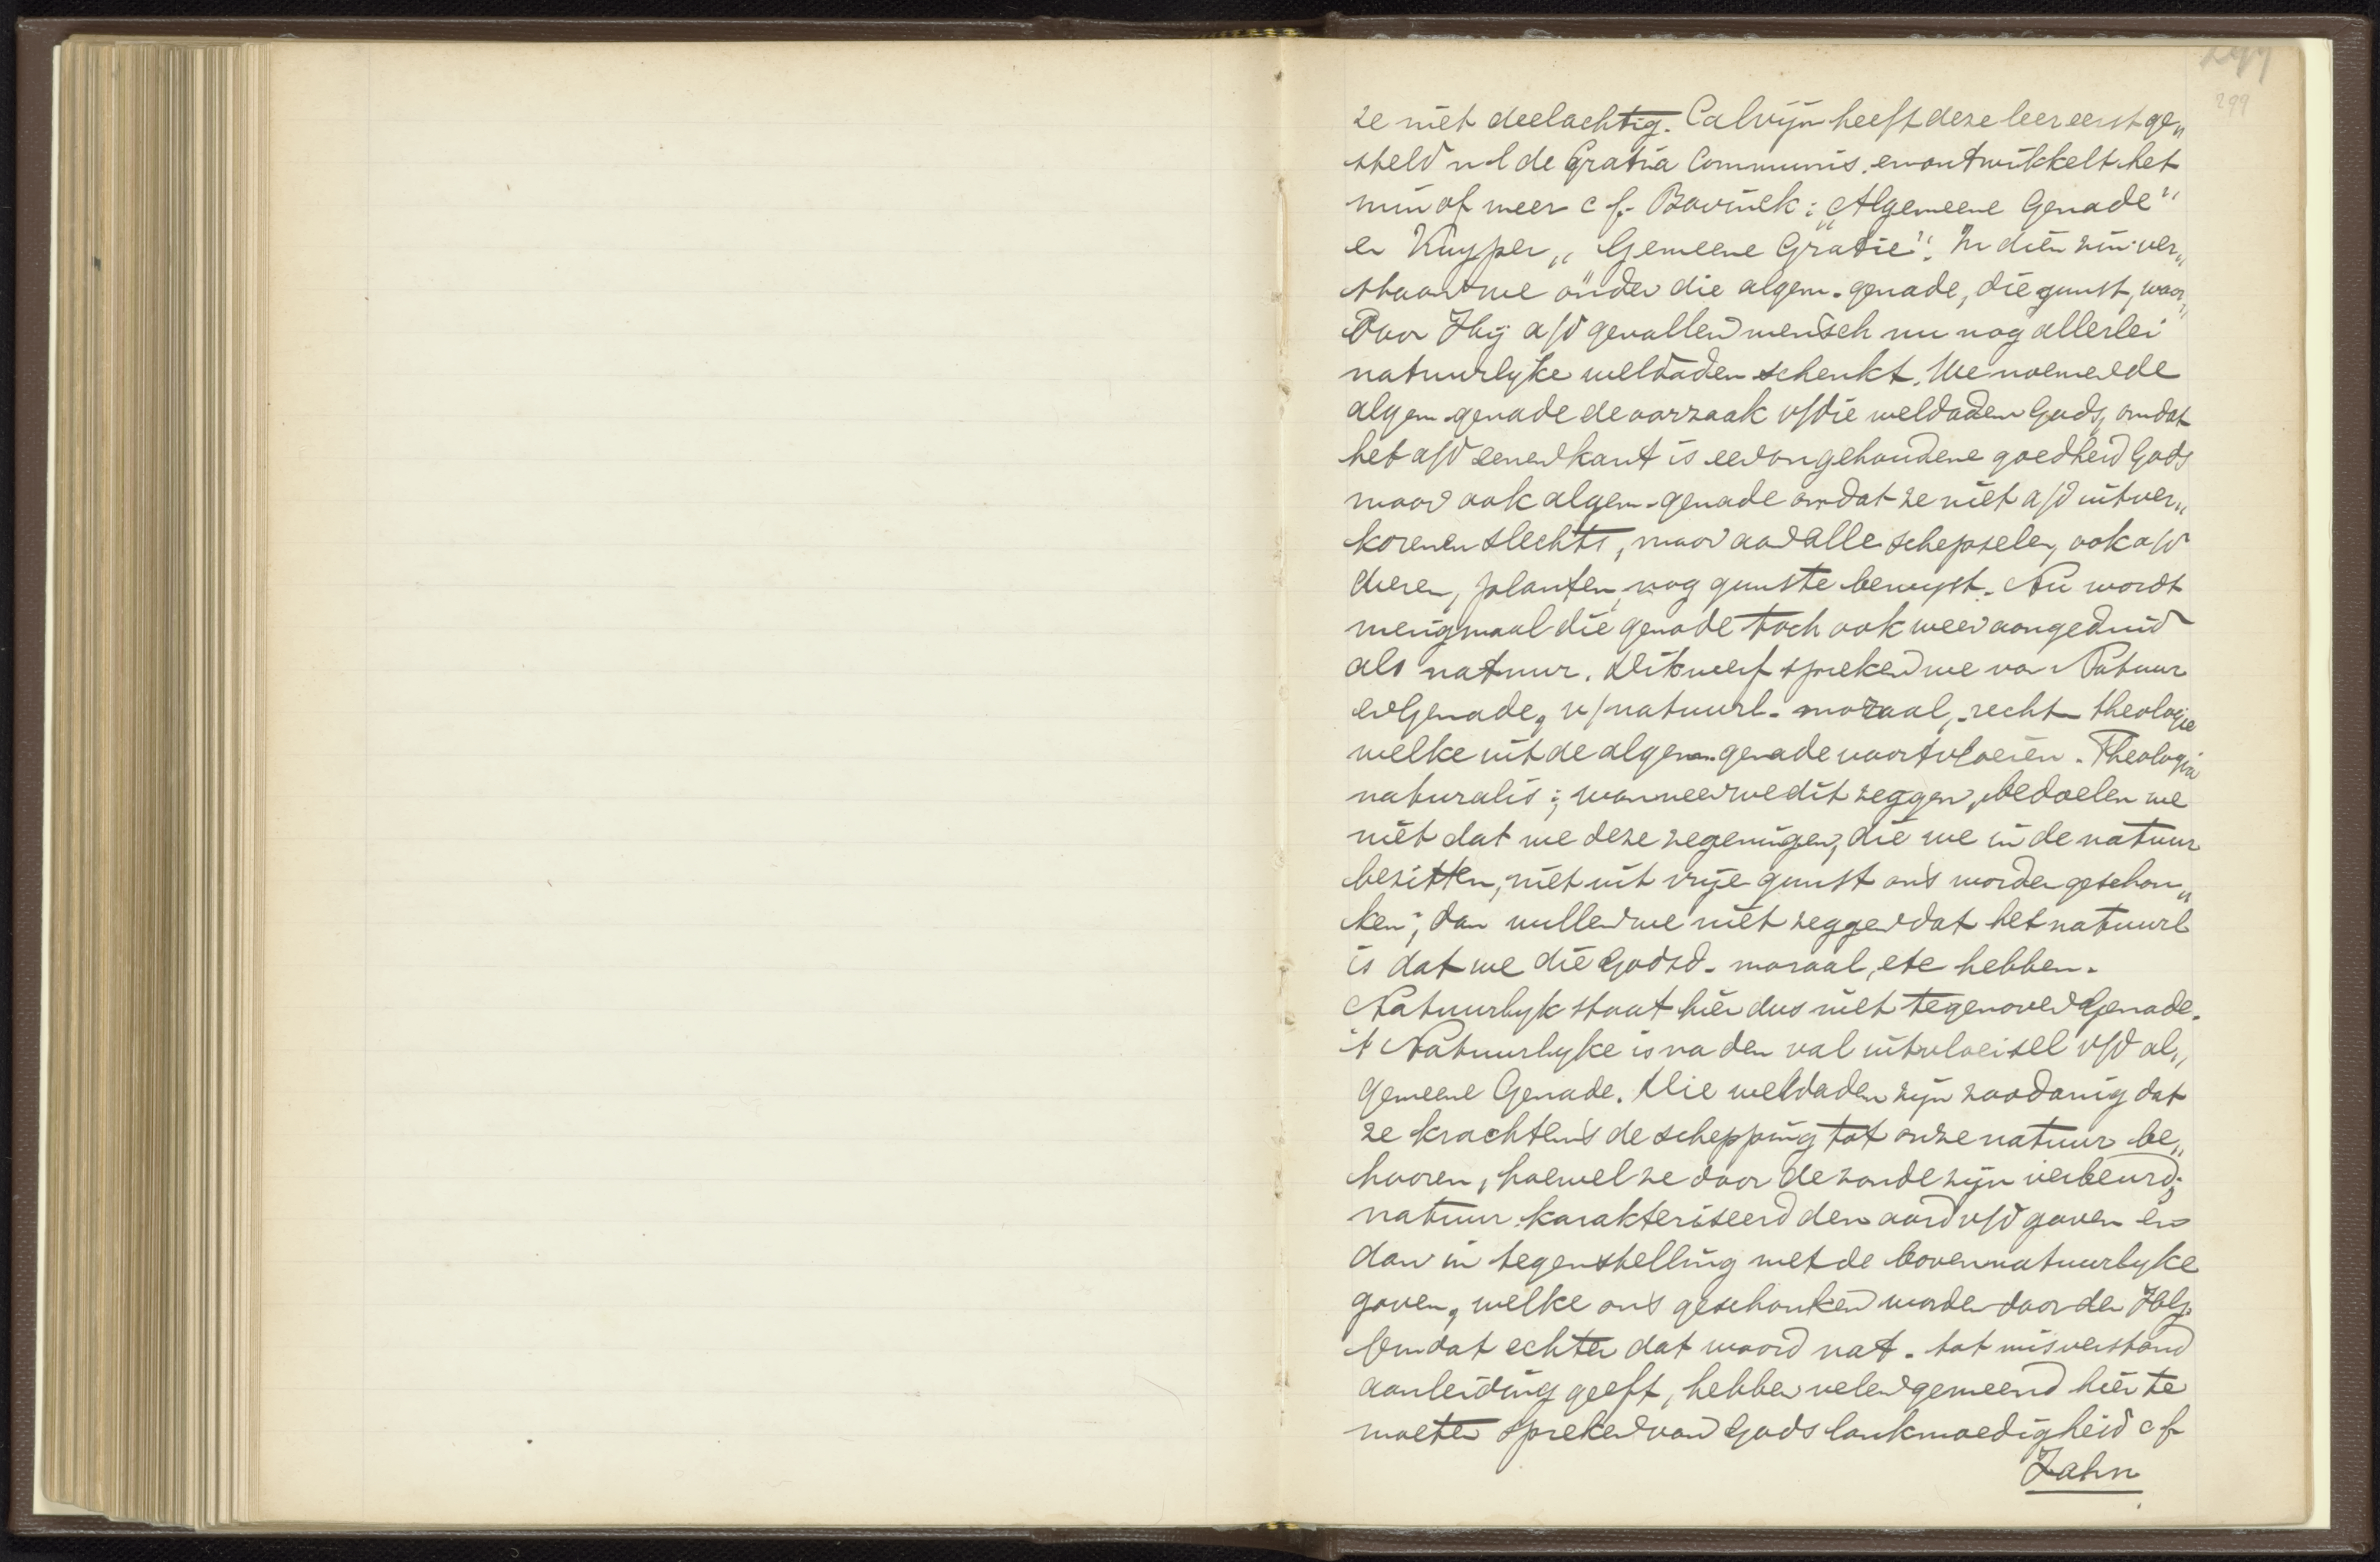 299
299
ze niet deelachtig. Calvijn heeft deze leer eerst ge„
steld nl de Gratia Communis. en ontwikkelt het
min of meer cf. Bavinck: „Algemeene Genade"
en Kuyper „Gemeene Gratie". In dien zin ver„
staan we onder die algem. genade, die gunst, waar„
door Hij a/d gevallen mensch nu nog allerlei
natuurlyke weldaden schenkt. We noemen de
algem. genade de oorzaak v/die weldaden Gods, omdat
het a/d eenen kant is een ongehoudene goedheid Gods
maar ook algem. genade omdat ze niet a/d uitver„
korenen slechts, maar aan alle schepselen, ook a/d
dieren, planten, nog gunste bewyst. Nu wordt
menigmaal die genade toch ook weer aangeduid
als natuur. Dikwerf spreken we van Natuur
en Genade, v/natuurl. moraal, recht theologie
welke uit de algem. genade voortvloeien. Theologia
naturalis; wanneer we dit zeggen, bedoelen we
niet dat we deze zegeningen, die we in de natuur
bezitten, niet uit vrije gunst ons worden geschon„
ken; dan willen we niet zeggen dat het natuurl
is dat we die Godsd. moraal, etc hebben.
Natuurlyk staat hier dus niet tegenover Genade.
't Natuurlyke is na den val uitvloeisel v/d al„
gemeene Genade. Die weldaden zijn zoodanig dat
ze krachtens de schepping tot onze natuur be„
hooren, hoewel ze door de zonde zijn verbeurd;
natuur karakteriseerd den aard v/d gaven en
dan in tegenstelling met de bovennatuurlyke
gaven, welke ons geschonken worden door den Hlg.
Omdat echter dat woord nat. tot misverstand
aanleiding geeft, hebben velen gemeend hier te
moeten spreken van Gods lankmoedigheid cf
Zahn